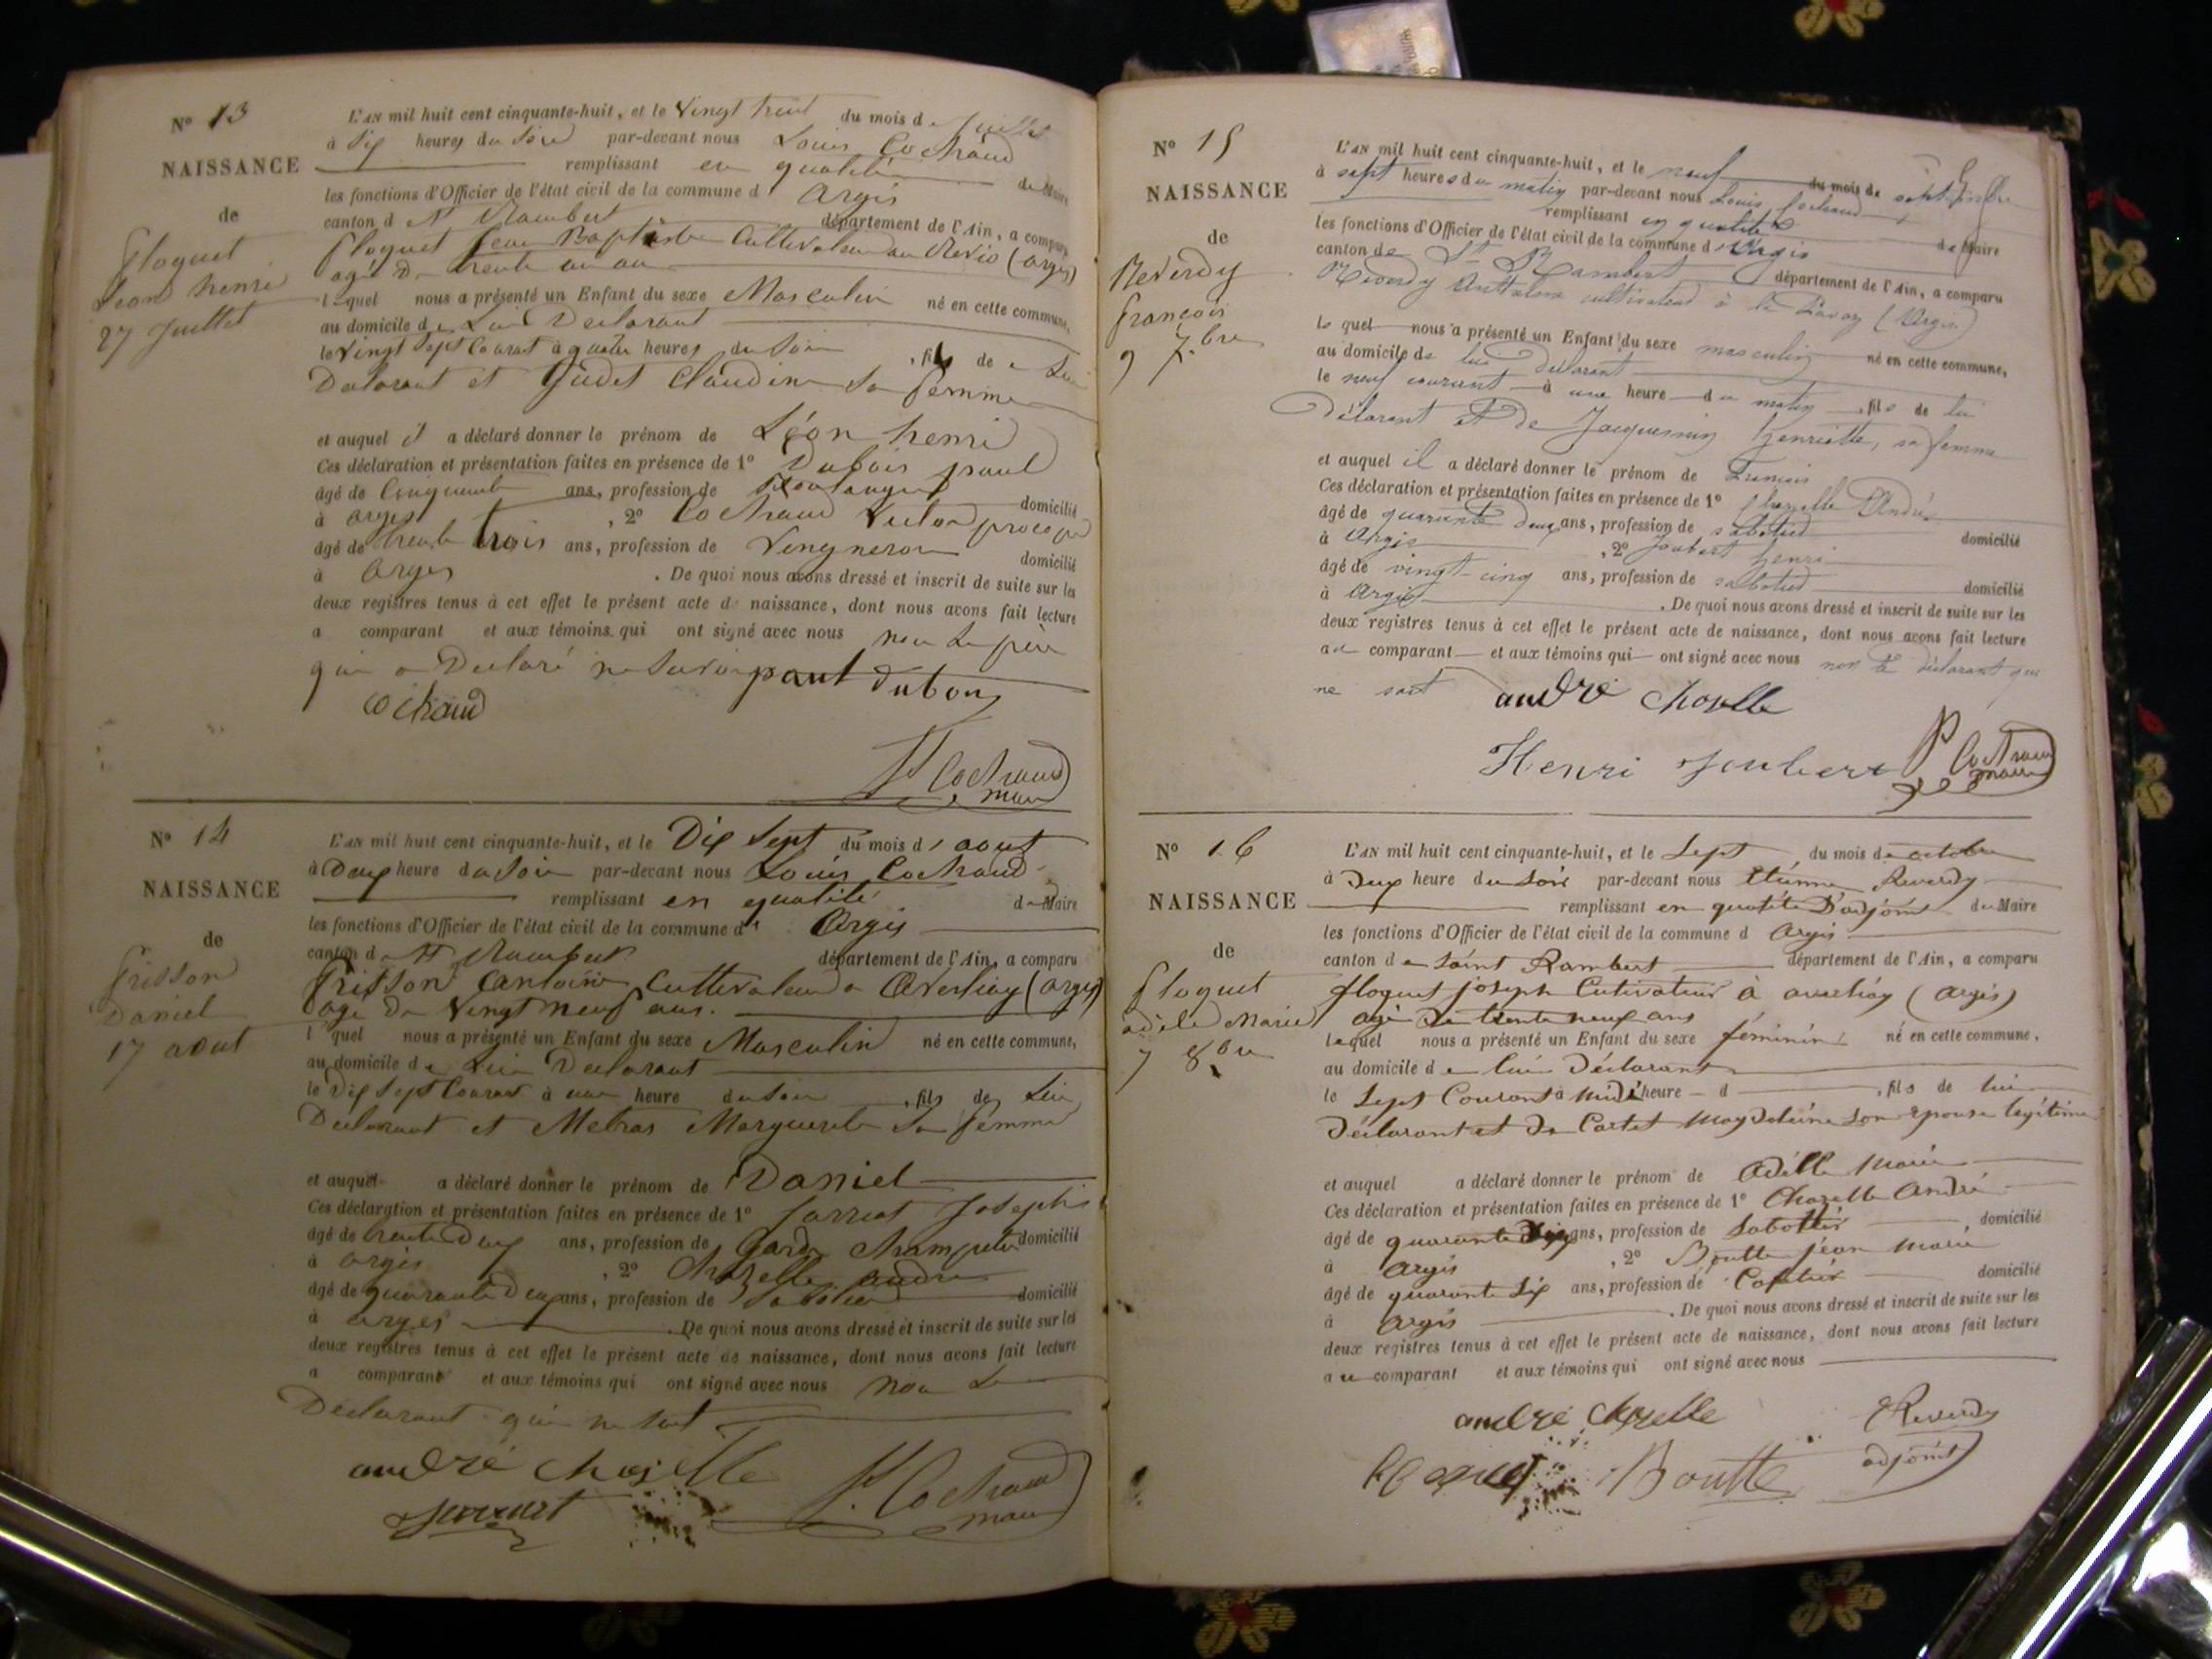 N° 13
NAISSANCE
de
Floquet
Léon henri
27 Juillet
L'AN mil huit cent cinquante-huit, et le Vingt huit du mois de Juillet
à Six heures du Soir par-devant nous Louis Cochaud
remplissant en qualité de Maire
les fonctions d'Officier de l'état civil de la commune d Argis
canton d St Rambert département de l'Ain, a comparu
Floquet Jean Baptiste Cultivateur au (Argis)
agé de trente un an
lequel nous a présenté un Enfant du sexe Masculin né en cette commune,
au domicile de Lui Declarant
le Vingt Sept Courant à quatre heures du Soir , fils de Lui
Declarant et Judet Claudine Sa femme
et auquel il a déclaré donner le prénom de Léon henri
Ces déclaration et présentation faites en présence de 1° Dubois paul
âgé de Cinquante ans, profession de Boulanger domicilié
à argis , 2° Cochaud Victor procope
âgé de trente trois ans, profession de Vingneron domicilié
à argis . De quoi nous avons dressé et inscrit de suite sur les
deux registres tenus à cet effet le présent acte de naissance, dont nous avons fait lecture
a comparant et aux témoins qui ont signé avec nous non Le père
qui a Declaré ne Savoir paul dubois
Cochaud
L Cochaud
maire
N° 14
NAISSANCE
de
Frisson
Daniel
17 aout
L'AN mil huit cent cinquante-huit, et le Dix Sept du mois d'aout
à Deux heure du Soir par-devant nous Louis Cochaud
remplissant en qualité de Maire
les fonctions d'Officier de l'état civil de la commune d' Argis
canton d St Rambert département de l'Ain, a comparu
Frisson antoine Cultivateur a Averliaz (argis)
agé de Vingt neuf ans.
l quel nous a présenté un Enfant du sexe Masculin né en cette commune,
au domicile de Lui Declarant
le Dix Sept Courant à une heure du Soir , fils de Lui
Declarant et Melras Marguerite Sa femme
et auquel a déclaré donner le prénom de Daniel
Ces déclaration et présentation faites en présence de 1° Joseph
âgé de trente Deux ans, profession de Garde Champetre domicilié
à argis , 2° Chazelle andré
âgé de quarante Deux ans, profession de Sabotier domicilié
à argis . De quoi nous avons dressé et inscrit de suite sur les
deux registres tenus à cet effet le présent acte de naissance, dont nous avons fait lecture
a comparant et aux témoins qui ont signé avec nous non Le
Declarant qui ne Sait
andré Chazelle
L. Cochaud
maire
N° 15
NAISSANCE
de
Reverdy
François
9 7.bre
L'AN mil huit cent cinquante-huit, et le neuf du mois de septembre
à sept heures du matin par-devant nous Louis Cochaud
remplissant en qualité de Maire
les fonctions d'Officier de l'état civil de la commune d'Argis
canton de St Rambert département de l'Ain, a comparu
Reverdy Anthelme cultivateur à (Argis)
le quel nous a présenté un Enfant du sexe masculin né en cette commune,
au domicile de lui déclarant
le neuf courant à une heure du matin , fils de lui
Déclarant et de Jacquemin henriette, sa femme
et auquel il a déclaré donner le prénom de François
Ces déclaration et présentation faites en présence de 1° Chazelle André
âgé de quarante deux ans, profession de sabotier domicilié
à Argis , 2° Joubert henri
âgé de vingt-cinq ans, profession de sabotier domicilié
à Argis . De quoi nous avons dressé et inscrit de suite sur les
deux registres tenus à cet effet le présent acte de naissance, dont nous avons fait lecture
au comparant et aux témoins qui ont signé avec nous non le déclarant qui
ne sait
andré Chazelle
Henri Joubert
Cochaud
maire
N° 16
NAISSANCE
de
Floquet
adèle Marie
7 8bre
L'AN mil huit cent cinquante-huit, et le Sept du mois de octobre
à Deux heure du Soir par-devant nous Etienne Reverdy
remplissant en qualité D'adjoint du Maire
les fonctions d'Officier de l'état civil de la commune d Argis
canton de Saint Rambert département de l'Ain, a comparu
floquet joseph Cutivateur à averliaz (argis)
agé de trente neuf ans
lequel nous a présenté un Enfant du sexe féminin né en cette commune,
au domicile de lui Déclarant
le Sept Courant à midi heure d , fils de lui
Déclarant et de Cartet Magdeleine Son épouse légitime
et auquel a déclaré donner le prénom de Adelle Marie
Ces déclaration et présentation faites en présence de 1° Chazelle André
âgé de quarante ans, profession de Sabottier , domicilié
à argis , 2° Boutte jéan marie
âgé de quarante Six ans, profession de domicilié
à argis . De quoi nous avons dressé et inscrit de suite sur les
deux registres tenus à cet effet le présent acte de naissance, dont nous avons fait lecture
au comparant et aux témoins qui ont signé avec nous
andré Chazelle
Reverdy
Boutte
adjoint